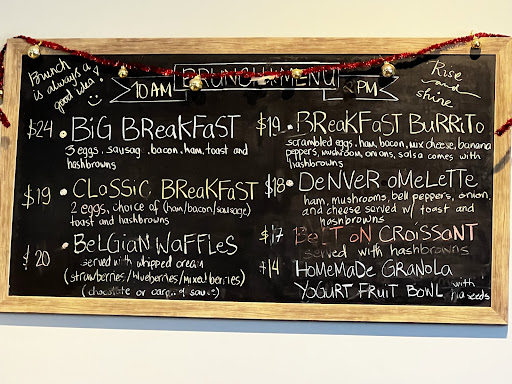 Brunch
is always a
good idea!
BRUNCH MENU
10 AM
2 PM
Rise
and
shine
$24 • BiG BReakFaST
3 eggs, sausag, bacon, ham, toast and
hashbrowns
$19 • CLaSSiC BReakFaST
2 eggs, choice of (ham/bacon/sausage)
toast and hashbrowns
$20 • BeLGiaN WaFFLeS
served with whipped cream
(strawberries/blueberries/mixed berries)
(chocolate or sauce)
$19 • BReakFaST BuRRiTo
scrambled eggs, ham, bacon, mix cheese, banana
peppers, mushroom, onions, salsa comes with
hashbrowns
$18 • DeNVeR oMeLeTTe
ham, mushrooms, bell peppers, onion,
and cheese served w/ toast and
hashbrowns
$17 BeLT oN CRoiSSaNT
served with hashbrowns
14 HoMeMaDe GRaNoLa
YoGuRT FRuiT BoWL with
seeds